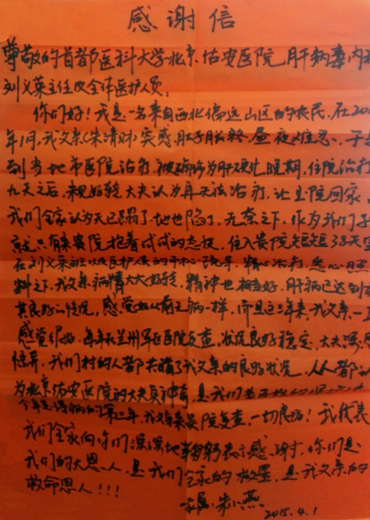 感谢信
尊敬的首都医科大学北京佑安医院肝病毒内科
刘义荣主任及全体医护人员:
你们好!我是一名来自西北偏远山区的农民,在20
年1月,我父亲(朱清财)突感肚子胀,昼夜难忍,于是
到当地市医院治疗,被确诊为肝硬化晚期,住院治疗
九天之后,未见好转,大夫认为再无法治疗,让出院回家,
我们全家认为天已塌了,地也陷了,无奈之下,作为我们子
女只有来贵院抱着试试的态度,住入贵院短短38天里
在刘义荣主任以及医护人员的精心治疗,悉心照
料之下,我父亲病情大大好转,精神也相当好,肝病已达到
其良好的情况,感觉如以前无病一样,而且这三年来,我父亲一直
感觉很好,每年在兰州军区医院复查,状况良好稳定,大夫深感
惊异,我们村的人都共睹了我父亲的良好状况,人人都认
为北京佑安医院的大夫真神奇,是我们
今年是得病的第三年,我父亲来贵院复查,一切良好!我代表
我们全家向你们深深地鞠躬表示感谢,你们是
我们的大恩人,是我们全家的救星,是我父亲的
救命恩人!!!
家属:朱小燕
2015.4.1